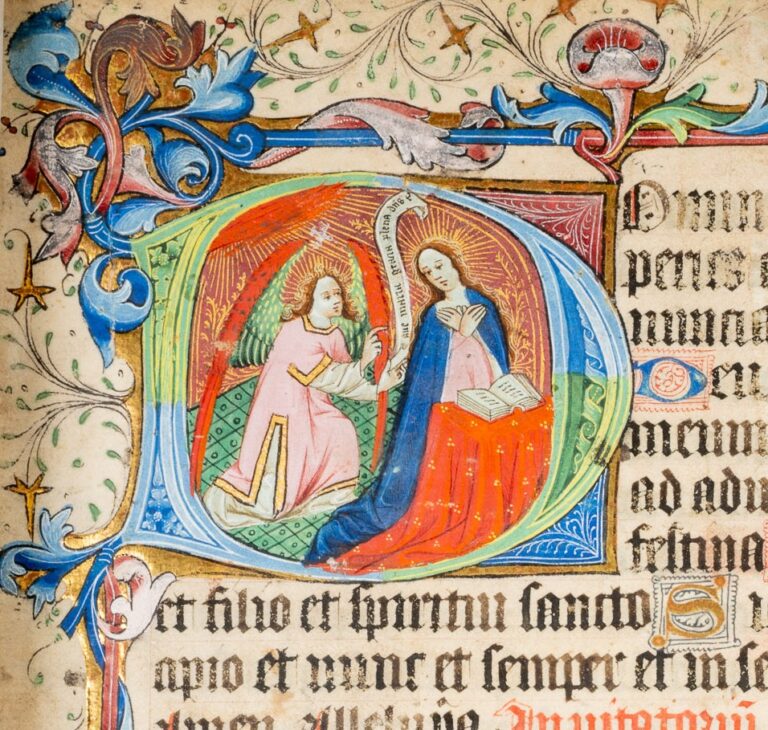 aue maria gracia plena dns
Domin
peries e
nuncia
Deu
meum
ad adiu
festina
et filio et spiritui sancto Si
cipio et nunc et semper et in se
Amen Alleluya Inuitatoriū